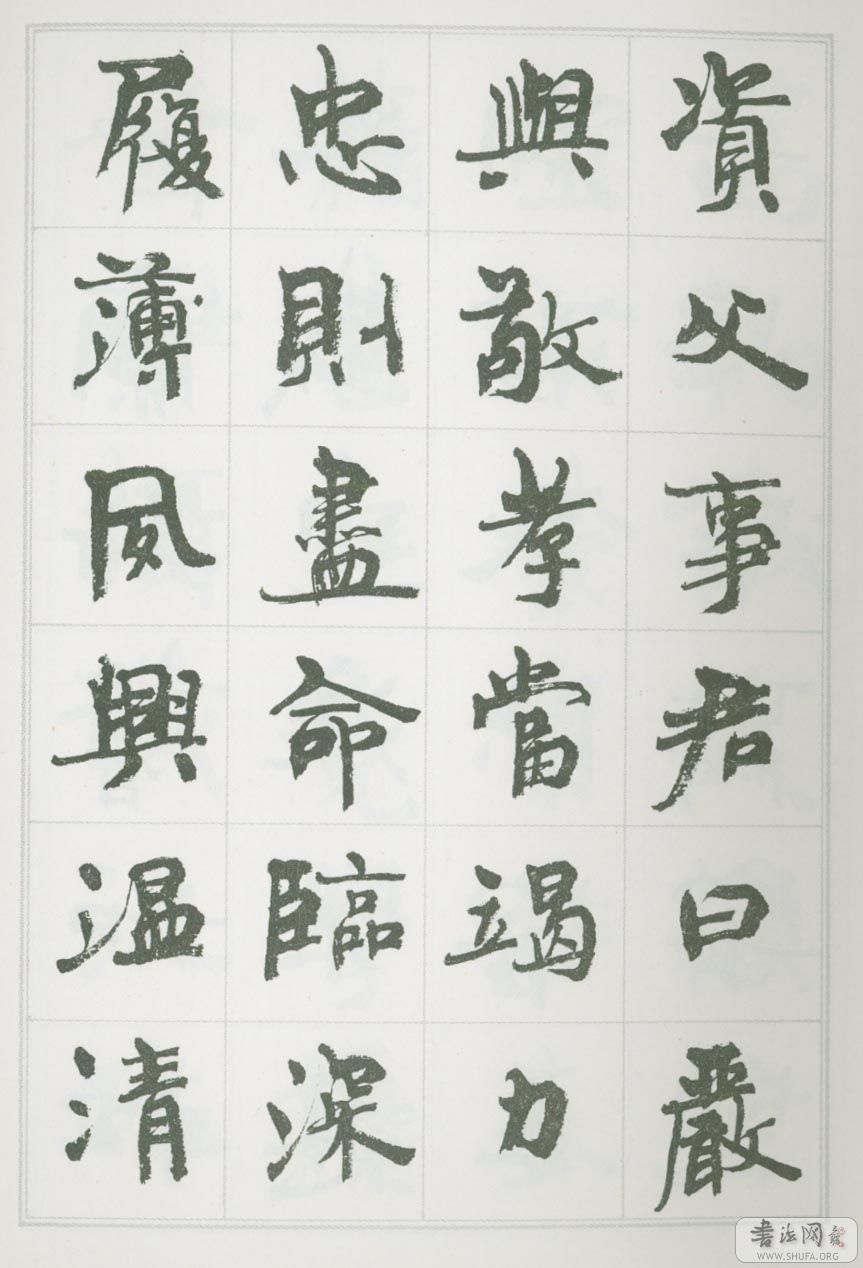 資父事君曰嚴
與敬孝當竭力
忠則盡命臨深
履薄夙興温清
書法网
WWW.SHUFA.ORG